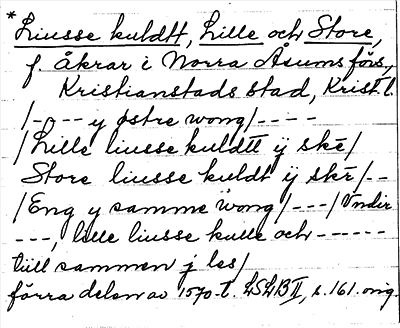 *Liusse kuldtt, Lille och Store,
f. åkrar i Norra Åsums förs,
Kristianstads stad, Krist. l.
/- - - y østre wong/ - - - -
/Lille liusse kuldtt ÿ skē/
Store liusse kuldt ÿ skē/ - -
/Eng y samme wong/ - - -/Vndir
- - -, lille liusse kulle och - - - - - -
tiill sammen j les/
förra delen av 1570-t. LSLB II, s. 161. orig.